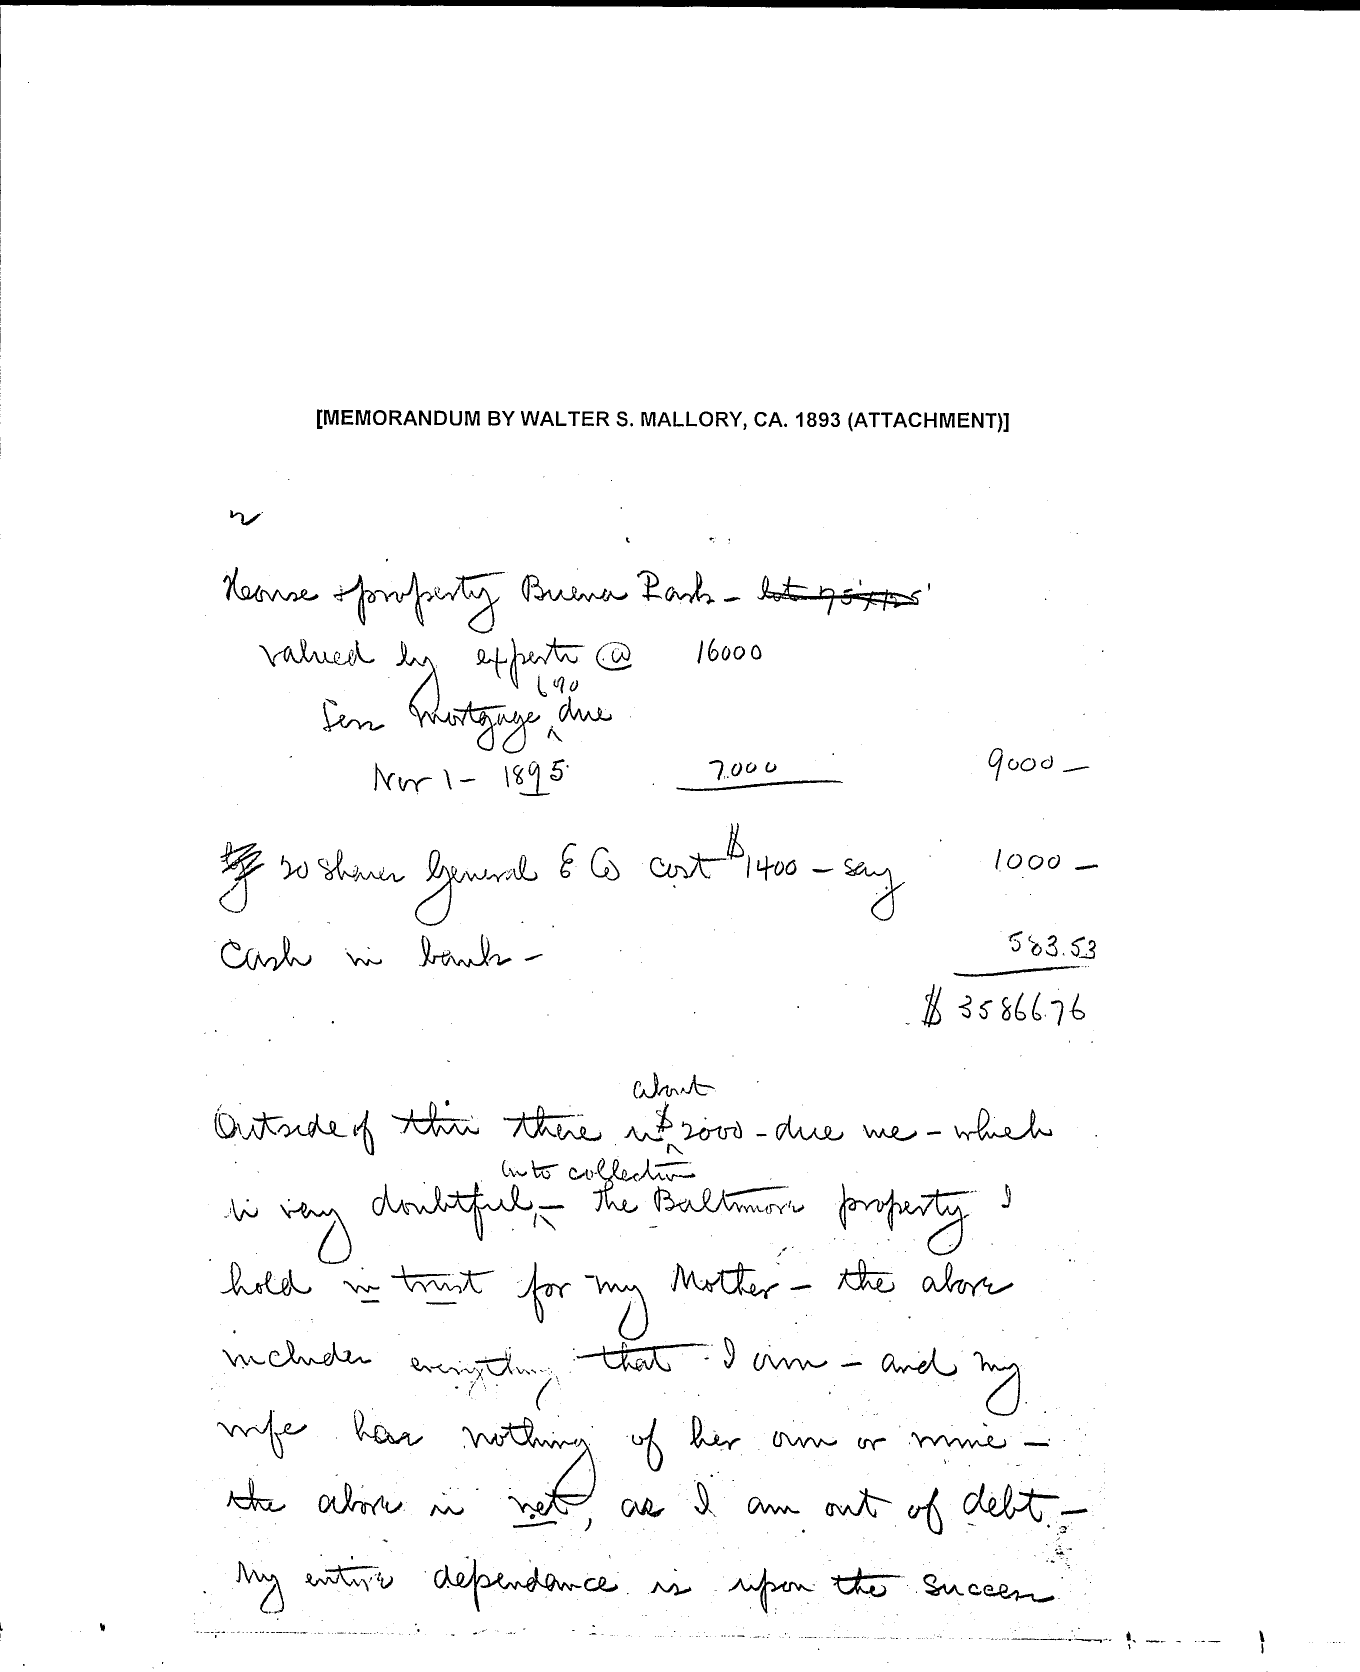 [MEMORANDUM BY WALTER S. MALLORY, CA. 1893 (ATTACHMENT)]
2
House & property Buena Park - lot 75 x 125'
valued by experts @ 16000
6%
Less mortgage ^ due
Nov 1 - 1895 7000 9000 -
20 shares General E Co cost $1400 - say 1000 -
Cash in bank - 583.53
$ 35866.76
about
Outside of this there is $ ^ 2000 - due me - which
as to collection
is very doubtful, ^ - the Baltimore property I
hold in trust for my Mother - the above
includes everything that I own - and my
wife has nothing of her own or mine -
the above is net, as I am out of debt -
My entire dependance is upon the success